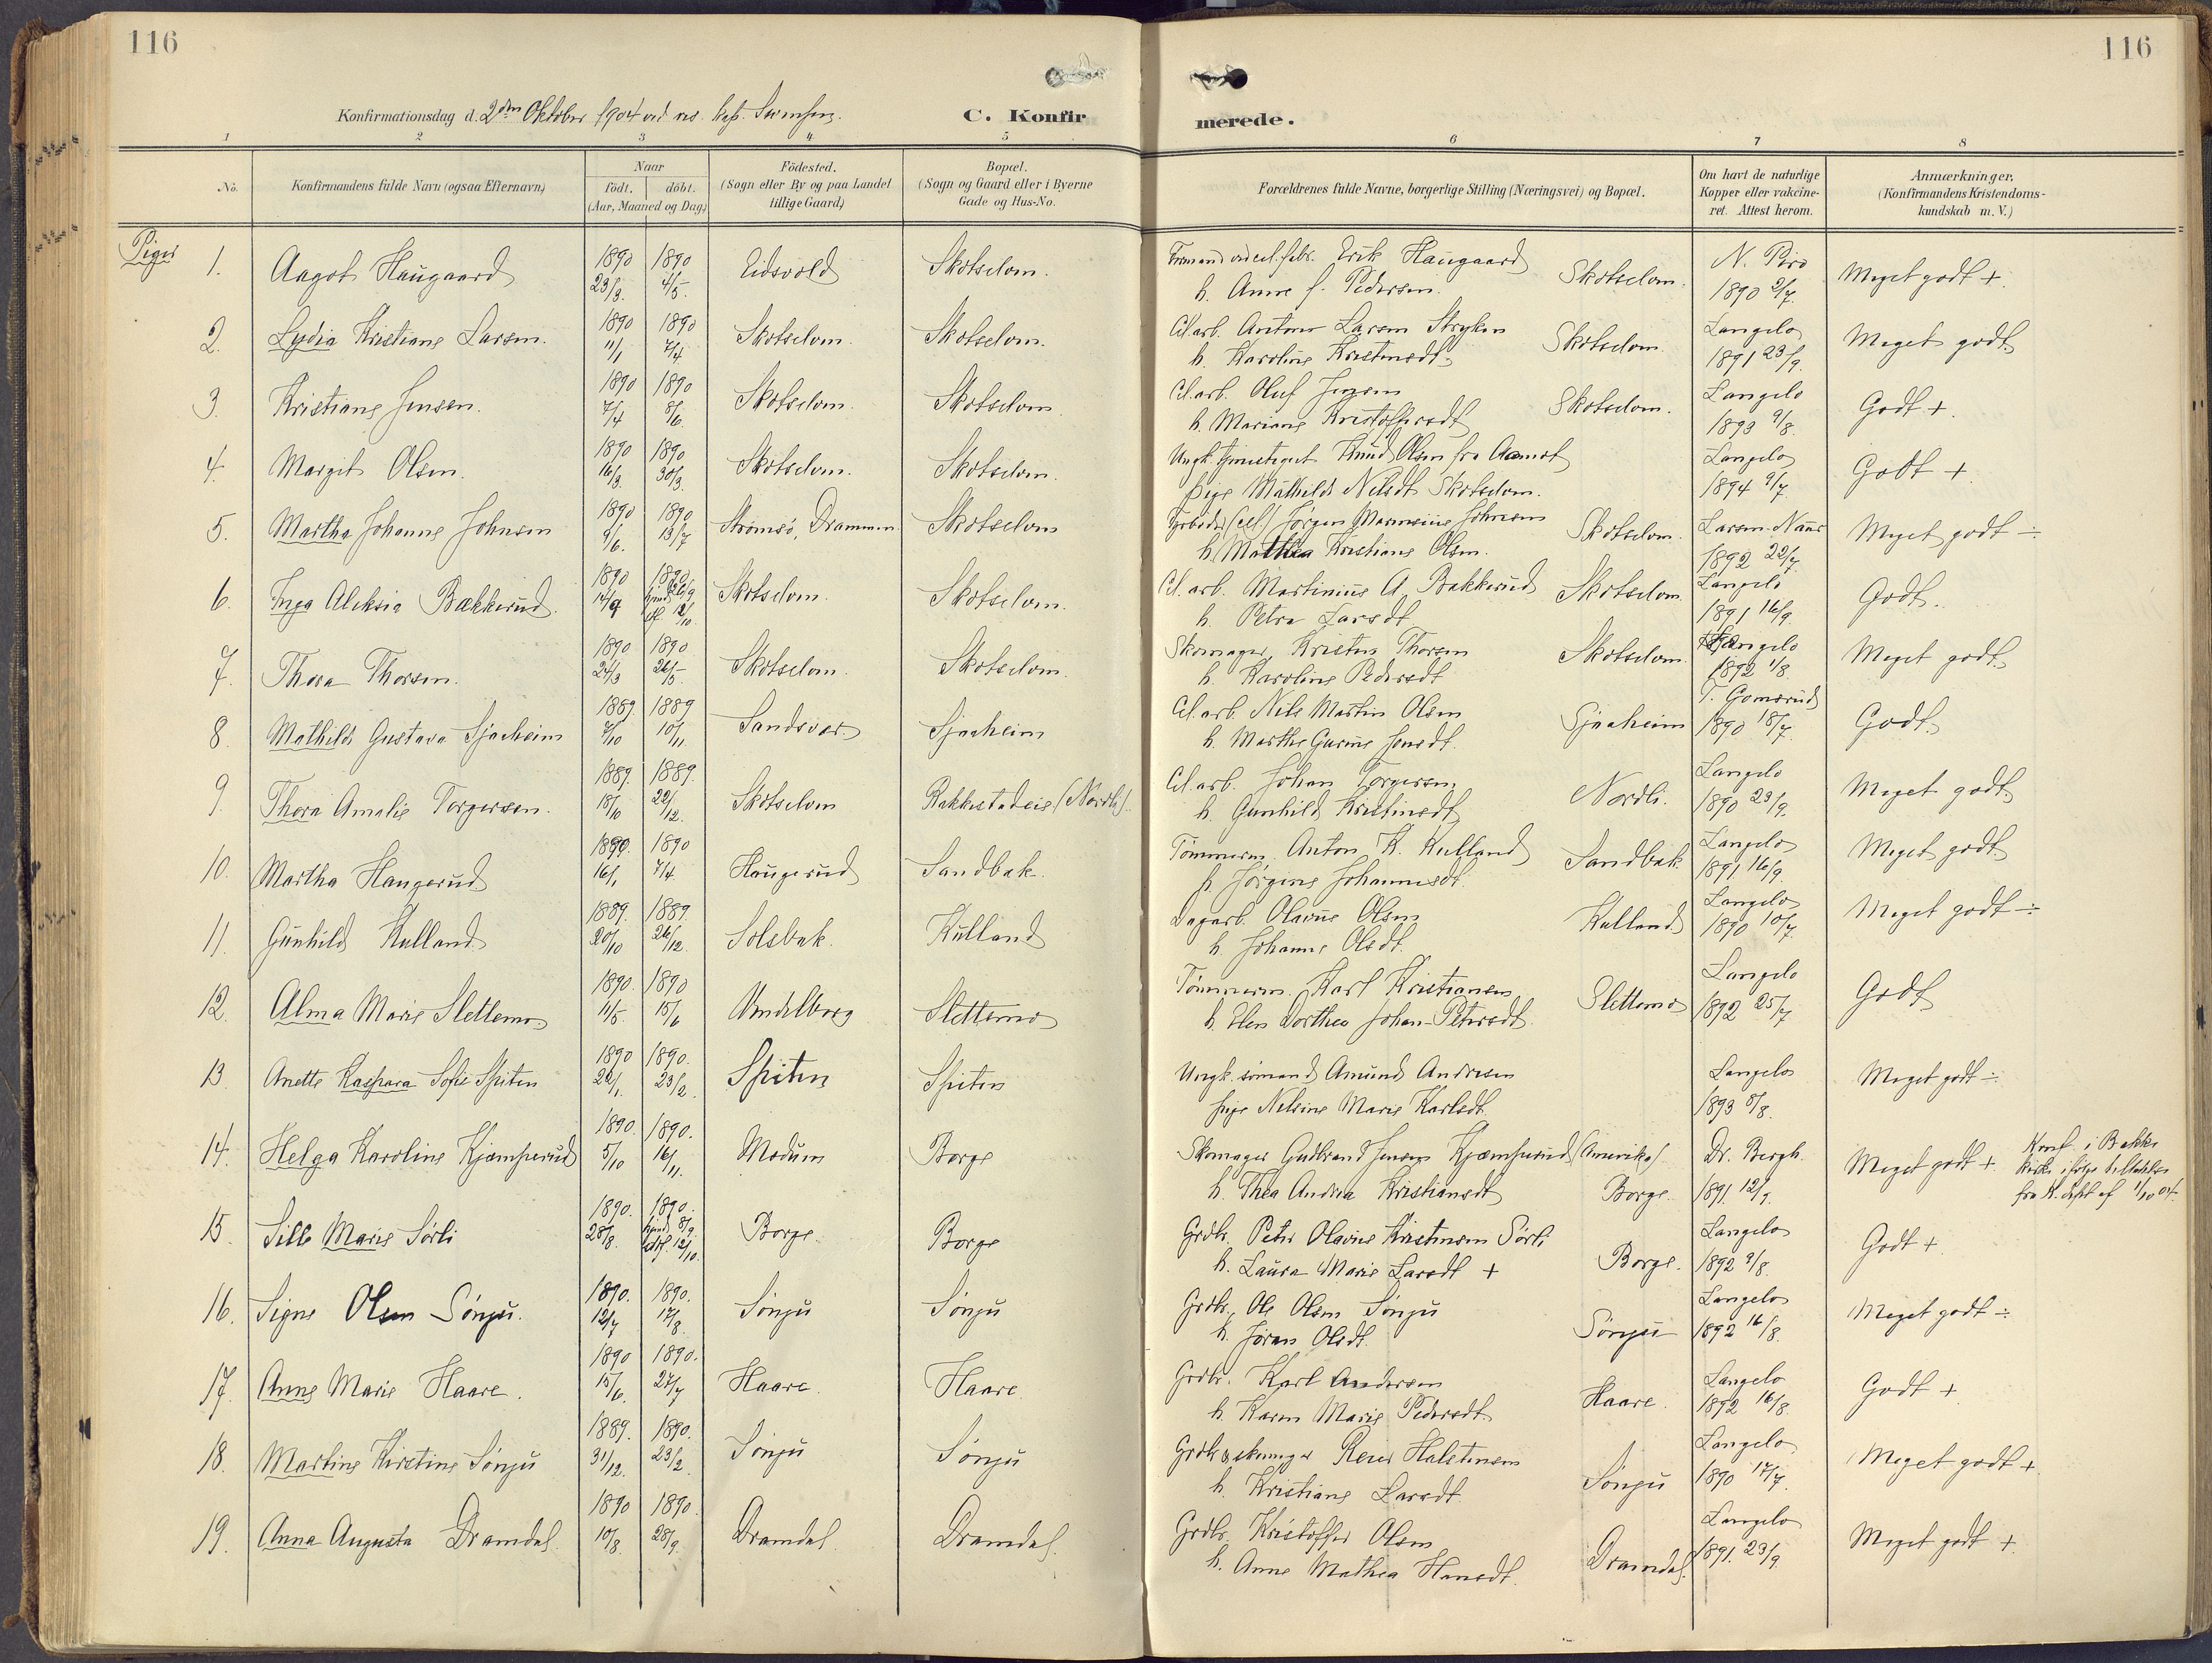 116
116
Konfirmationsdag d. 2den Oktober 1904 ved res. kap. Svensen.
C. Konfir
merede.
1 2 3 4 5 6 7 8
No.
Konfirmandens fulde Navn (ogsaa Efternavn)
Naar
födt. döbt.
(Aar, Maaned og Dag.)
Födested.
(Sogn eller By og paa Landet
tillige Gaard)
Bopæl.
(Sogn og Gaard eller i Byerne
Gade og Hus-No.
Forældrenes fulde Navne, borgerlige Stilling (Næringsvei) og Bopæl.
Om havt de naturlige
Kopper eller vakcine-
ret. Attest herom.
Anmærkninger.
(Konfirmandens Kristendoms-
kundskab m. V.)
Piger
1. Aagot Haugaard 1890 23/3. 1890 4/5. Eidsvold Skotselven. Formand ved cel.fabr. Erik Haugaard
h. Anne f. Pedersen. Skotselven. N. Piro 1890 2/7. Meget godt +.
2. Lydia Kristiane Larsen. 1890 11/1 1890 7/4 Skotselven. Skotselven. Cel.arb. Anton Larsen Stryken
h. Karoline Kristensdt. Skotselven. Langelo 1891 23/9. Meget godt.
3. Kristiane Jensen. 1890 7/4 1890 8/6. Skotselven. Skotselven. Cel.arb. Oluf Jensen
h. Mariane Kristoffersdt. Skotselven. Langelo 1893 9/8. Godt +.
4. Margit Olsen. 1890 16/3. 1890 30/3. Skotselven. Skotselven. Ungk. tjenestegut Knud Olsen fra Aamot
Pige Mathilde Nilsdt. Skotselven. Langelo 1894 9/7. Godt +
5. Martha Johanne Johnsen 1890 9/6. 1890 13/7 Strömsö, Drammen. Skotselven Jörgen Marensius Johnsen
h. Mathea Kristiane Olsen. Skotselven. Larsen-Naur 1892 22/7. Meget godt ÷
6. Inga Aleksia Bækkerud. 1890 14/9 1890 hjmd. 26/9 12/10 Skotselven. Skotselven. Cel.arb. Martinius A. Bækkerud
h. Petra Larsdt. Skotselven Langelo 1891 16/9. Godt.
7. Thora Thorsen. 1890 24/3 1890 26/5. Skotselven. Skotselven. Skomager, Kristen Thorsen
h. Karoline Pedersdt. Skotselven. Langelo 1892 1/8. Meget godt.
8. Mathilde Gustava Sjaaheim 1889. 7/10 1889 10/11. Sandsvær. Sjaaheim Cel.arb. Nils Martin Olsen
h. Marthe Gurine Jensdt. Sjaaheim T. Gomsrud 1890 18/7. Godt.
9. Thora Amalie Torgersen. 1889. 18/10 1889. 22/12. Skotselven Rakkestadeie (Nordli). Cel.arb. Johan Torgersen
h. Gunhild Kristensdt. Nordli. Langelo 1890 23/9. Meget godt.
10. Martha Haugerud 1890. 16/1 1890 7/4. Haugerud Sandbak. Tömmerm. Anton K. Kulland
h. Jörgine Johannesdt. Sandbak Langelo 1891 16/9 Meget godt.
11. Gunhild Kulland 1889. 20/10 1889. 26/12. Solsbak. Kulland Dagarb. Olavus Olsen
h. Johanne Olsdt. Kulland Langelo 1890 10/7. Meget godt ÷
12. Alma Marie Slettemo 1890. 11/5. 1890 15/6 Slettemo Tömmerm. Karl Kristiansen
h. Elen Dorthea Johan-Petersdt. Slettemo Langelo 1892 25/7 Godt
13. Anette Kaspara Sofie Spiten 1890 22/1. 1890. 23/2. Spiten Spiten Ungk. sömand Amund Andresen
pige Nilsine Marie Karlsdt. Langelo 1893 8/8. Meget godt ÷
14. Helga Karoline Kjæmperud 1890. 5/10 1890. 16/11. Modum Borge Skomager Gudbrand Jensen Kjæmperud (Amerika)
h. Thea Andrea Kristiansdt. Borge. Dr. Bergh. 1891. 12/9. Meget godt + Konf. i Bakke
kirke ifölge tilladelse
fra K. dept. af 1/10 04.
15. Sille Marie Sörli 1890. 28/8. 1890. hjmd. 8/9. 12/10. Borge. Borge Grdbr. Peter Olavus Kristensen Sörli
h. Laura Marie Larsdt. + Borge. Langelo 1892 9/8. Godt +
16. Signe Olsen Sönju. 1890. 12/7 1890. 17/8. Sönju Sönju Grdbr., Ole Olsen Sönju
h. Jöran Olsdt. Sönju Langelo 1892 16/8. Meget godt ÷
17. Anne Marie Haare. 1890 15/6. 1890. 27/7 Haare. Haare. Grdbr. Karl Andersen
h. Karen Marie Pedersdt. Haare. Langelo 1892 16/8. Godt +
18. Martine Kirstine Sönju 1889. 31/12. 1890. 23/2. Sönju Sönju Grdbr & skomager Reier Halstensen
h. Kristiane Larsdt. Sönju Langelo 1890 17/7. Meget godt +
19. Anna Augusta Dramdal. 1890 10/8. 1890. 28/9. Dramdal Dramdal. Grdbr. Kristoffer Olsen
h. Anne Mathea Hansdt. Dramdal. Langelo 1891. 23/9. Meget godt +.